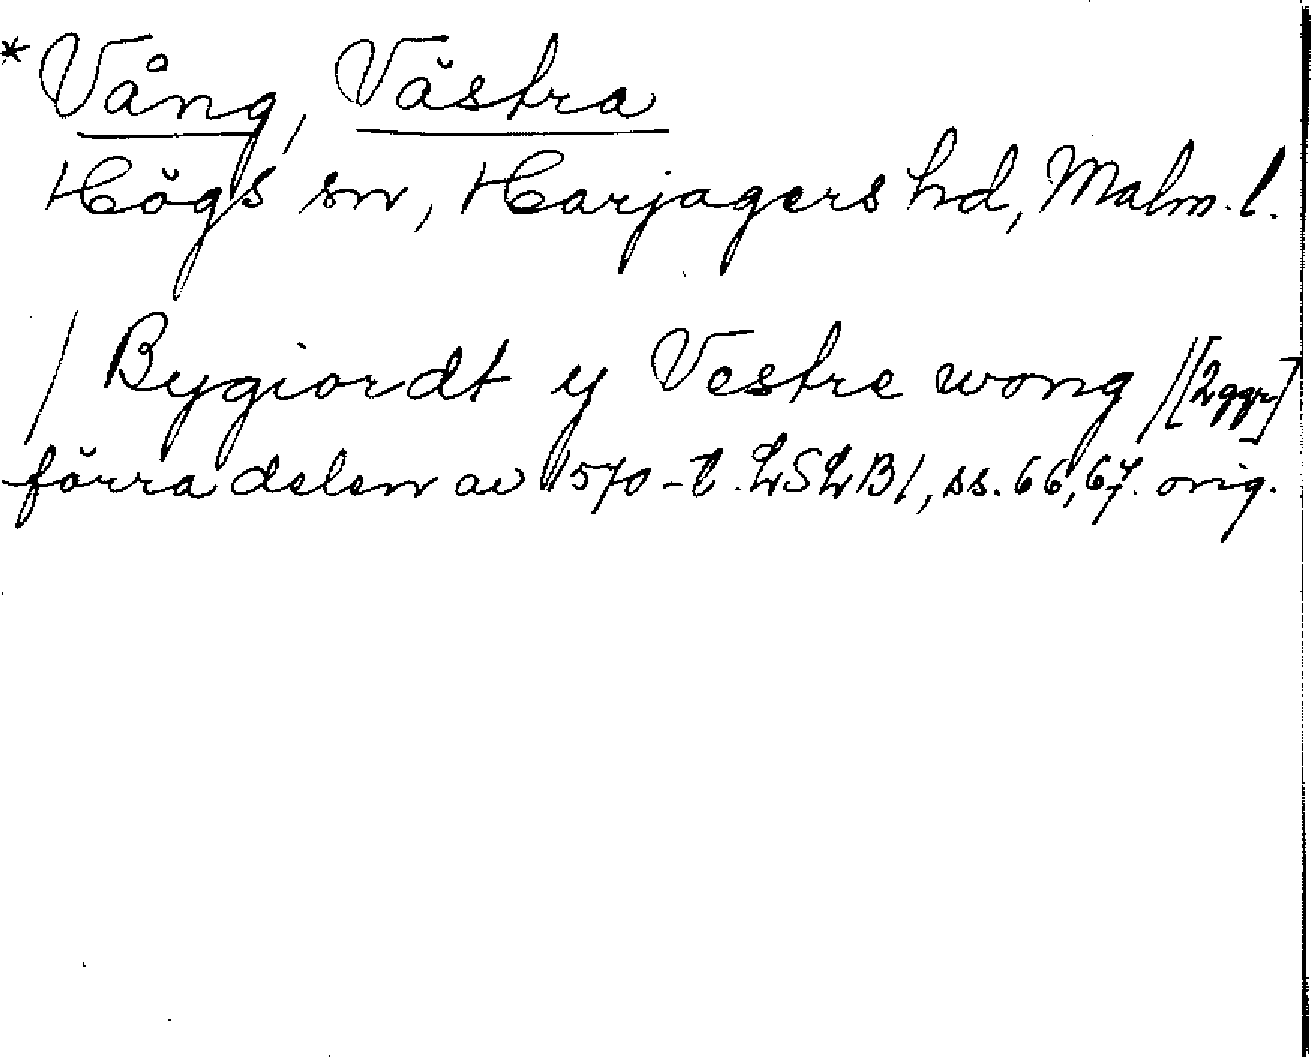 *Vång, Västra
Högs sn, Harjagers hd, Malm. l.
/ Bygiordt y Vestre wong /[2 ggr]
förra delen av 1570-t. LSLB1, ss. 66, 67. orig.